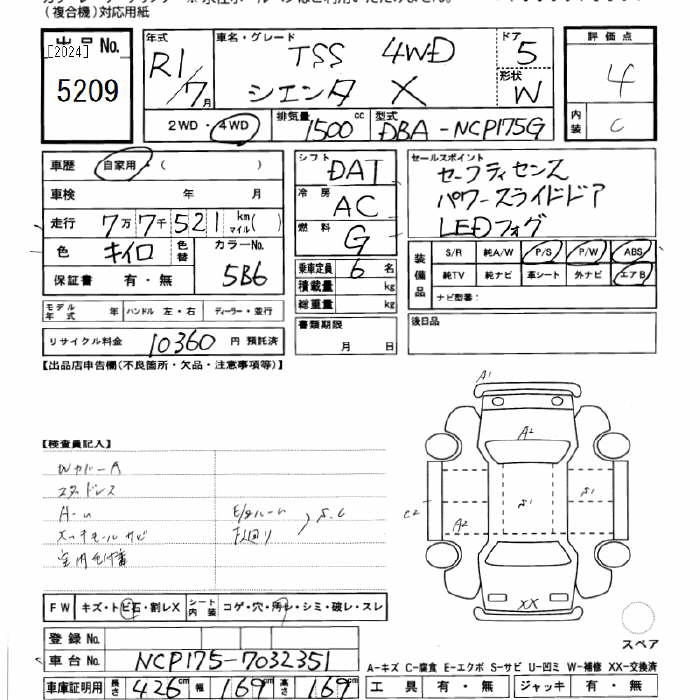 (複合機)対応用紙
出品No.
[2024]
5209
年式
R1/7月
車名・グレード
TSS 4WD
シエンタ X
ドア
5
形状
W
評価点
4
内装
C
2WD・4WD
排気量
1500cc
型式
DBA-NCP175G
車歴 自家用・( )
車検 年 月
走行 7万7千521 km マイル( )
色 キイロ 色替 カラーNo. 5B6
保証書 有・無
モデル年式 年 ハンドル 左・右 ディーラー・並行
リサイクル料金 10360 円 預託済
シフト DAT
冷房 AC
燃料 G
乗車定員 6 名
積載量 kg
総重量 kg
書類期限
月 日
セールスポイント
セーフティセンス
パワースライドドア
LEDフォグ
装備品
S/R 純A/W P/S P/W ABS
純TV 純ナビ 革シート 外ナビ エアB
ナビ型番:
後日品
【出品店申告欄(不良箇所・欠品・注意事項等)】
【検査員記入】
Wカバー A
スタッドレス
下廻り S.C
A1
A2
C2
A2
S1
S1
XX
スペア
FW キズ・トビ石・割レX シート内装 コゲ・穴・汚レ・シミ・破レ・スレ
登録No.
車台No. NCP175-7032351
車庫証明用 長さ 426cm 幅 169cm 高さ 169cm
A-キズ C-腐食 E-エクボ S-サビ U-凹ミ W-補修 XX-交換済
工具 有・無 ジャッキ 有・無